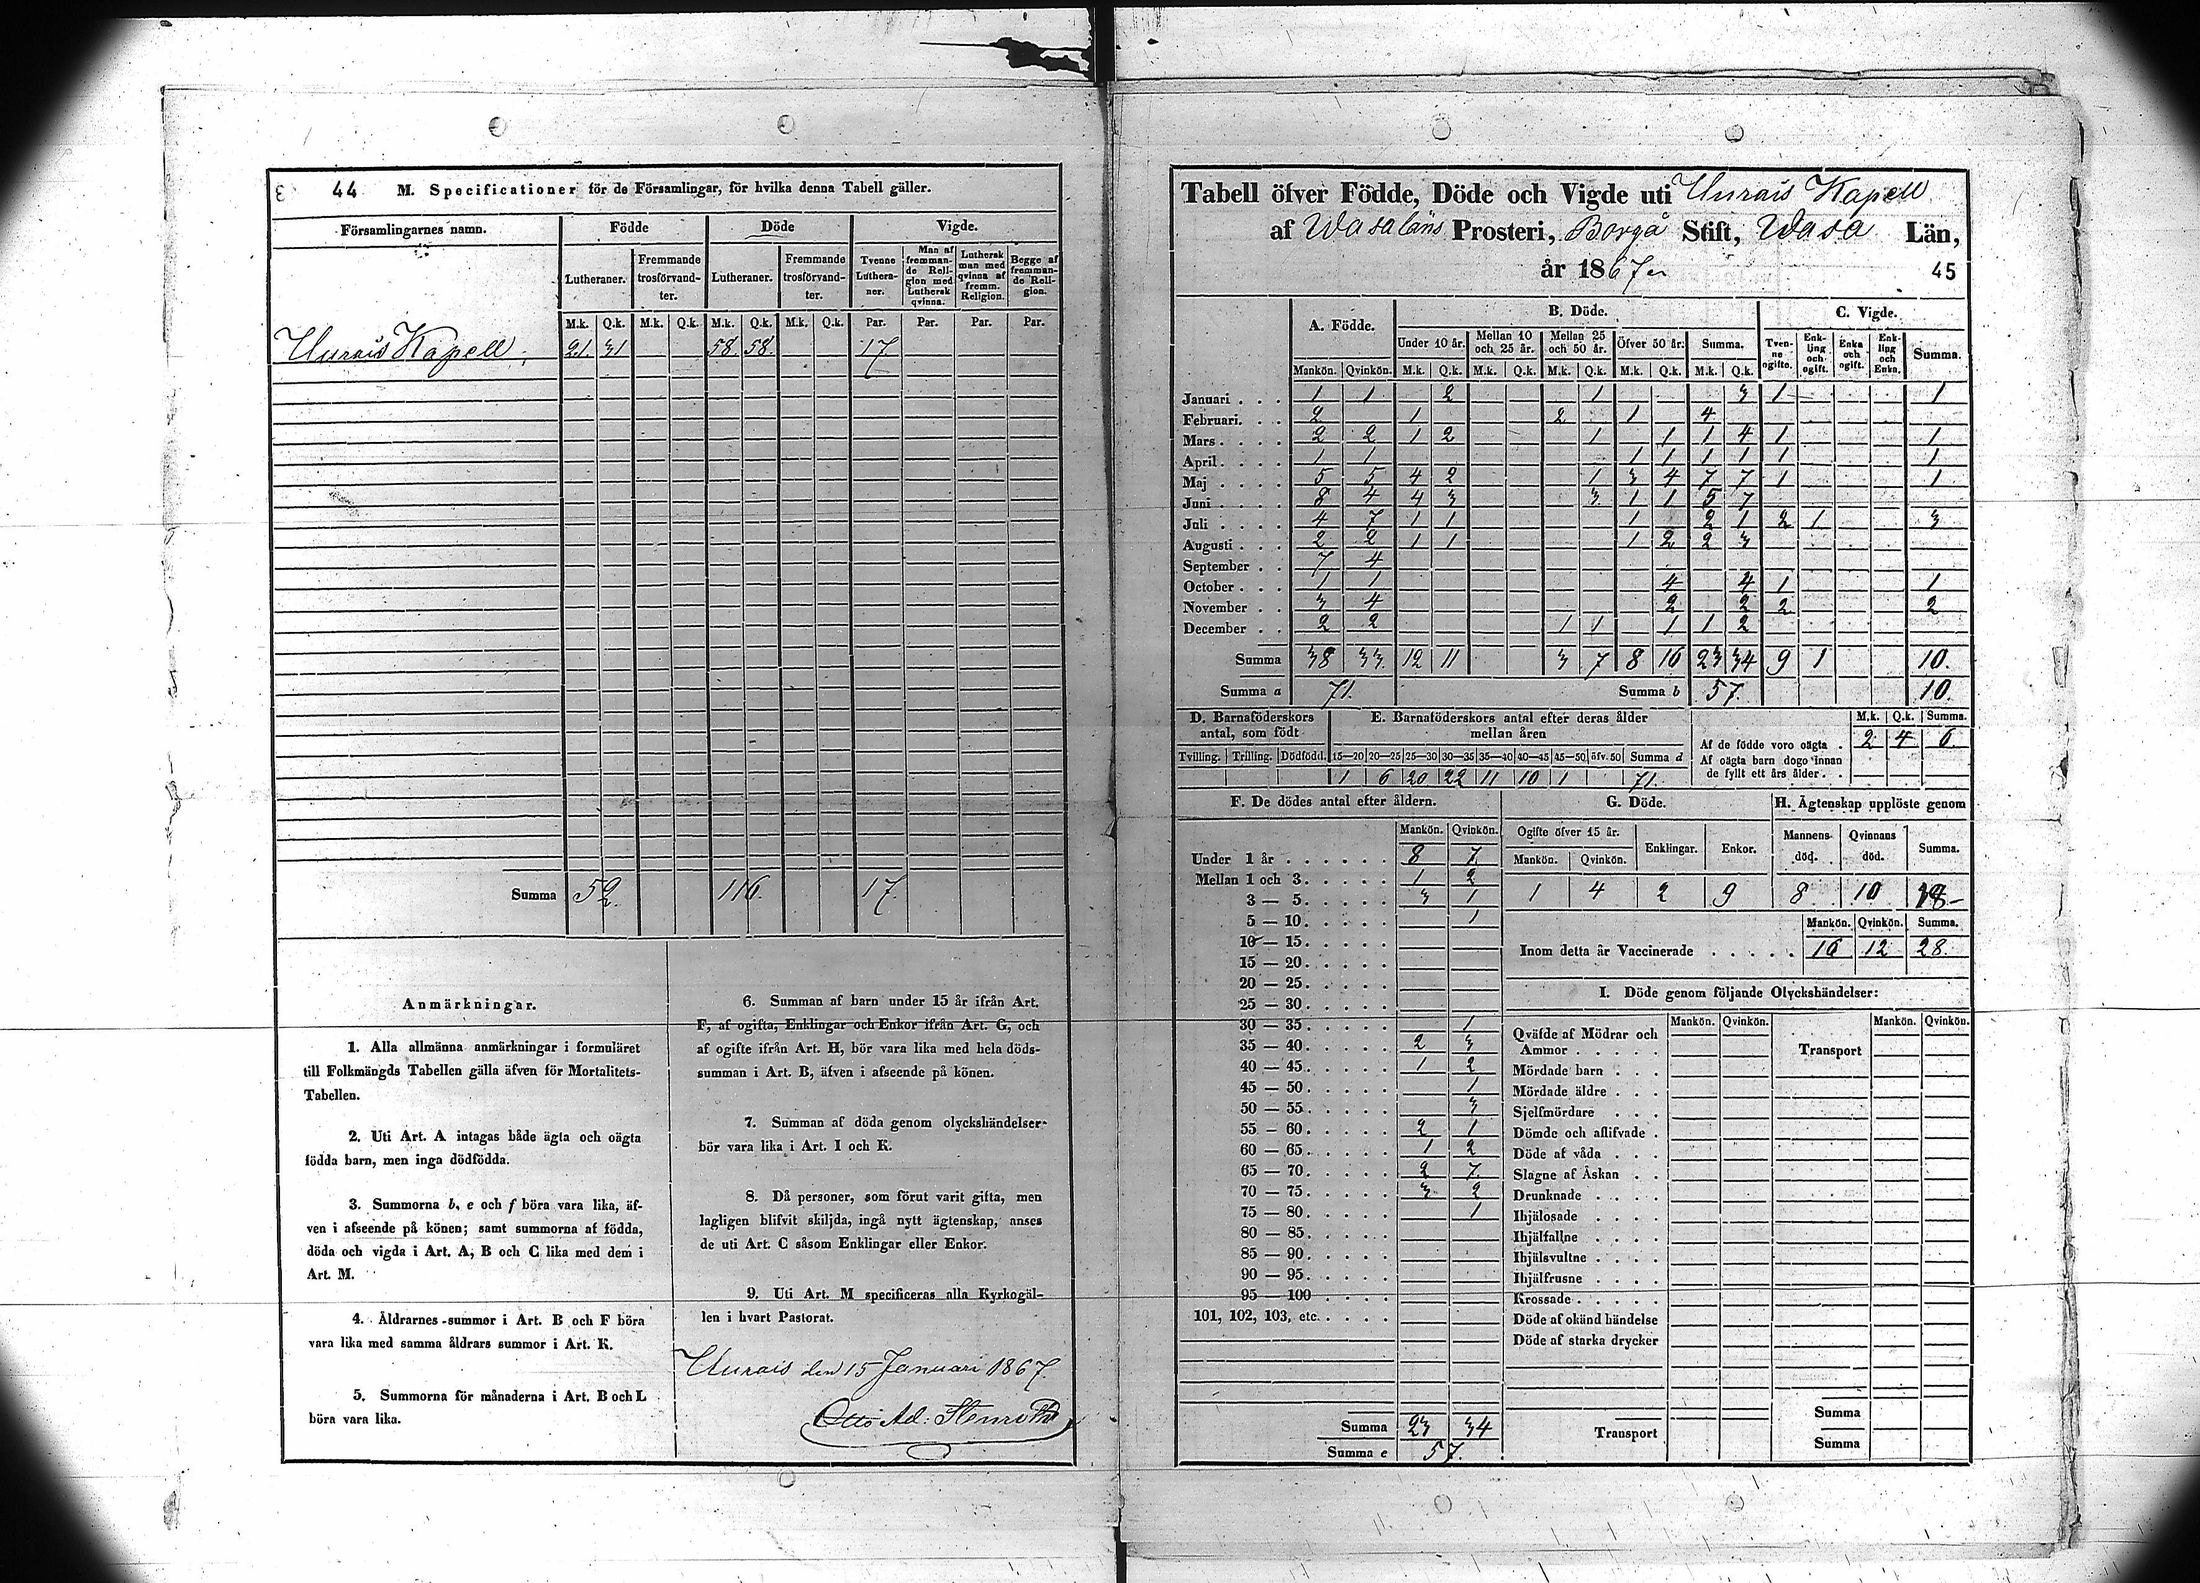 44 M. Specificationer för de Församlingar, för hvilka denna Tabell gäller.
Församlingarnes namn. Födde Döde Vigde.
Lutheraner. Fremmande trosförvandter. Lutheraner. Fremmande trosförvandter. Tvenne Lutheraner. Man af fremmande Religion med Luthersk qvinna. Luthersk man med qvinna af fremm. Religion. Begge af fremmande Religion.
M.k. Q.k. M.k. Q.k. M.k. Q.k. M.k. Q.k. Par. Par. Par. Par.
Uurais Kapell 21. 31 58. 58. 17
Summa 52. 116. 17.
Anmärkningar.
1. Alla allmänna anmärkningar i formuläret
till Folkmängds Tabellen gälla äfven för Mortalitets-
Tabellen.
2. Uti Art. A intagas både ägta och oägta
födda barn, men inga dödfödda.
3. Summorna b, e och f böra vara lika, äf-
ven i afseende på könen; samt summorna af födda,
döda och vigda i Art. A, B och C lika med dem i
Art. M.
4. Åldrarnes summor i Art. B och F böra
vara lika med samma åldrars summor i Art. K.
5. Summorna för månaderna i Art. B och L
böra vara lika.
6. Summan af barn under 15 år ifrån Art.
F, af ogifta, Enklingar och Enkor ifrån Art. G, och
af ogifte ifrån Art. H, bör vara lika med hela döds-
summan i Art. B, äfven i afseende på könen.
7. Summan af döda genom olyckshändelser
bör vara lika i Art. I och K.
8. Då personer, som förut varit gifta, men
lagligen blifvit skiljda, ingå nytt ägtenskap, anses
de uti Art. C såsom Enklingar eller Enkor.
9. Uti Art. M specificeras alla Kyrkogäl-
len i hvart Pastorat.
Uurais den 15 Januari 1867.
Otto Ad: Stenroth
Tabell öfver Födde, Döde och Vigde uti Uurais Kapell
af Wasaläns Prosteri, Borgå Stift, Wasa Län,
år 1867 45
A. Födde. B. Döde. C. Vigde.
Under 10 år. Mellan 10 och 25 år. Mellan 25 och 50 år. Öfver 50 år. Summa. Tvenne ogifte. Enkling och ogift. Enka och ogift. Enkling och Enka. Summa.
Mankön. Qvinkön. M.k. Q.k. M.k. Q.k. M.k. Q.k. M.k. Q.k. M.k. Q.k.
Januari . . . 1 1 2 1 3 1 1
Februari. . . 2 1 2 1 4
Mars . . . . 2 2 1 2 1 1 1 4 1 1
April. . . . 1 1 1 1 1 1 1 1
Maj . . . . 5 5 4 2 1 3 4 7 7 1 1
Juni . . . . 8 4 4 3 3 1 1 5 7
Juli . . . . 4 7 1 1 1 2 1 2 1 3
Augusti . . . 2 2 1 1 1 2 2 3
September . . 7 4
October . . . 1 1 4 4 1 1
November . . 3 4 2 2 2 2
December . . 2 2 1 1 1 1 2
Summa 38 33 12 11 3 7 8 16 23 34 9 1 10.
Summa a 71. Summa b 57. 10.
D. Barnaföderskors antal, som födt E. Barnaföderskors antal efter deras ålder mellan åren
M.k. Q.k. Summa.
Af de födde voro oägta . 2 4 6
Af oägta barn dogo innan
de fyllt ett års ålder . .
Tvilling. Trilling. Dödfödd. 15—20 20—25 25—30 30—35 35—40 40—45 45—50 öfv. 50 Summa d
1 6 20 22 11 10 1 71.
F. De dödes antal efter åldern. G. Döde. H. Ägtenskap upplöste genom
Mankön. Qvinkön. Ogifte öfver 15 år. Enklingar. Enkor. Mannens död. Qvinnans död. Summa.
Mankön. Qvinkön.
1 4 2 9 8 10 18
Mankön. Qvinkön. Summa.
Inom detta år Vaccinerade . . . . . 16 12 28.
Under 1 år . . . . . . 8 7
Mellan 1 och 3. . . . . 1 2
3 — 5. . . . . 3 1
5 — 10. . . . . 1
10 — 15. . . . .
15 — 20. . . . .
20 — 25. . . . .
25 — 30. . . . .
30 — 35. . . . . 1
35 — 40. . . . . 2 3
40 — 45. . . . . 1 2
45 — 50. . . . . 1
50 — 55. . . . . 3
55 — 60. . . . . 2 1
60 — 65. . . . . 1 2
65 — 70. . . . . 2 7
70 — 75. . . . . 3 2
75 — 80. . . . . 1
80 — 85. . . . .
85 — 90. . . . .
90 — 95. . . . .
95 — 100 . . . .
101, 102, 103, etc. . . . .
Summa 23 34
Summa e 57.
I. Döde genom följande Olyckshändelser:
Mankön. Qvinkön. Mankön. Qvinkön.
Qväfde af Mödrar och
Ammor . . . . . Transport
Mördade barn . . .
Mördade äldre . . .
Sjelfmördare . . .
Dömde och aflifvade .
Döde af våda . . .
Slagne af Åskan . .
Drunknade . . . .
Ihjälosade . . . .
Ihjälfallne . . . .
Ihjälsvultne . . . .
Ihjälfrusne . . . .
Krossade . . . . .
Döde af okänd händelse
Döde af starka drycker
Summa
Transport Summa